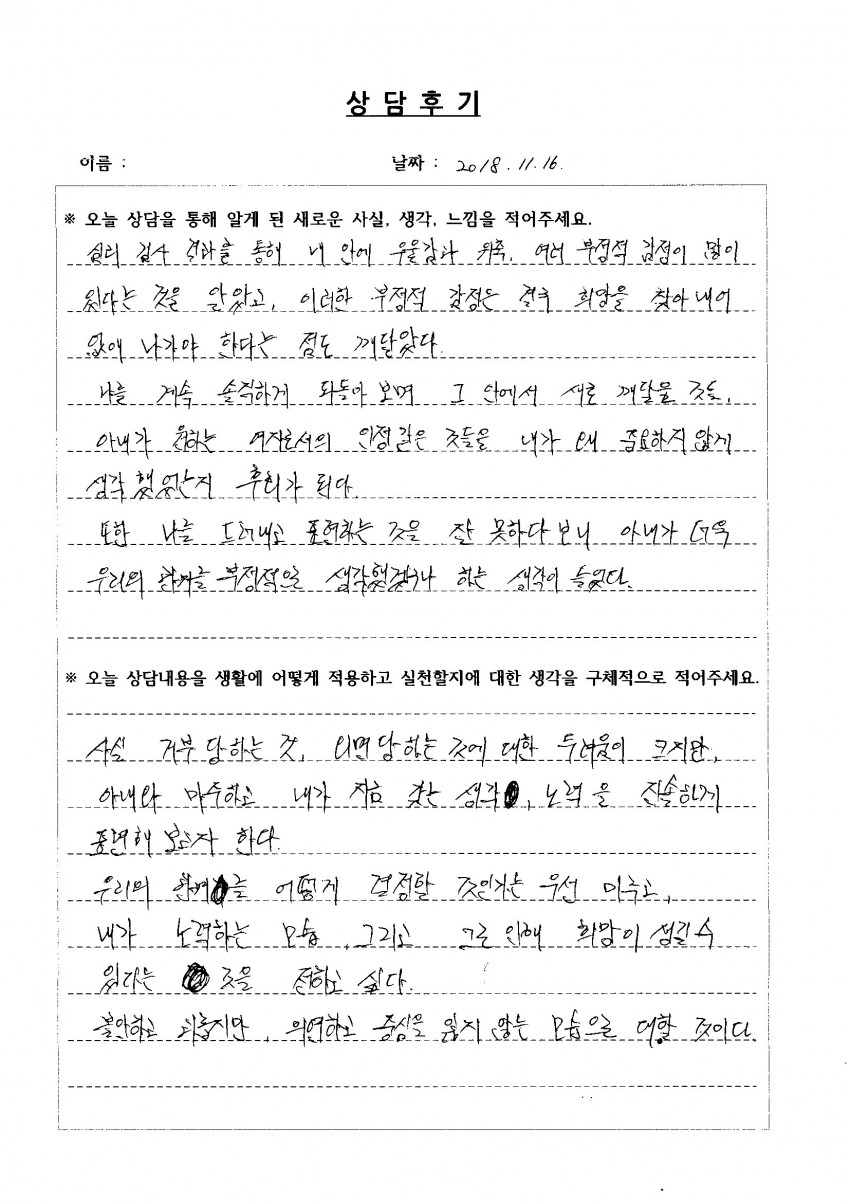 상 담 후 기
이름 : 날짜 : 2018. 11. 16.
※ 오늘 상담을 통해 알게 된 새로운 사실, 생각, 느낌을 적어주세요.
심리 검사 결과를 통해 내 안에 우울감과 위축, 여러 부정적 감정이 많이
있다는 것을 알았고, 이러한 부정적 감정은 결국 희망을 찾아내어
없애 나가야 한다는 점도 깨달았다.
나를 계속 솔직하게 되돌아 보며 그 안에서 새로 깨달을 것들,
아내가 원하는 여자로서의 인정 같은 것들을 내가 왜 중요하지 않게
생각했었는지 후회가 된다.
또한 나를 드러내고 표현하는 것을 잘 못하다 보니 아내가 더욱
우리의 관계를 부정적으로 생각했겠구나 하는 생각이 들었다.
※ 오늘 상담내용을 생활에 어떻게 적용하고 실천할지에 대한 생각을 구체적으로 적어주세요.
사실 거부 당하는 것, 외면 당하는 것에 대한 두려움이 크지만,
아내와 마주하고 내가 지금 갖는 생각, 노력을 진솔하게
표현해 보고자 한다.
우리의 관계를 어떻게 결정할 것인가는 우선 미루고,
내가 노력하는 모습, 그리고 그로 인해 희망이 생길 수
있다는 것을 전하고 싶다.
불안하고 괴롭지만, 의연하고 중심을 잃지 않는 모습으로 대할 것이다.